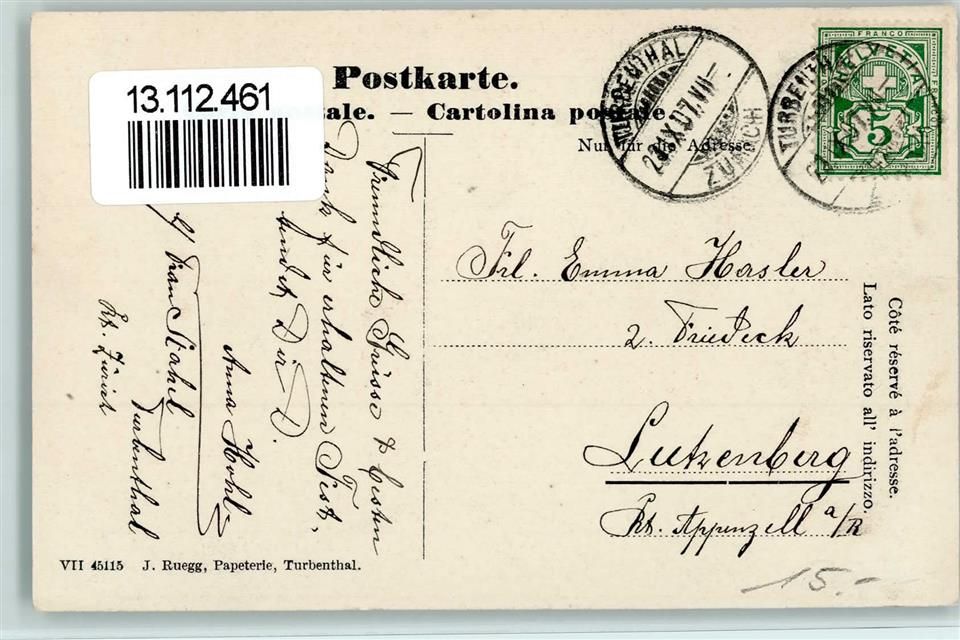 13.112.461
Postkarte.
tale. — Cartolina postale.
Nur für die Adresse.
TURBENTHAL
ZÜRICH
FRANCO
HELVETIA
5
TURBENTHAL
Frl. Emma Hasler
z. Friedeck
Lutzenberg
Kt. Appenzell a/R
Côté réservé à l'adresse.
Lato riservato all' indirizzo.
Freundliche Grüsse & besten
Dank für erhaltenen
sendet Dir D.
Anna Hohl
b/ Frau Stahel
Turbenthal
Kt. Zürich
VII 45115 J. Ruegg, Papeterie, Turbenthal.
15.-